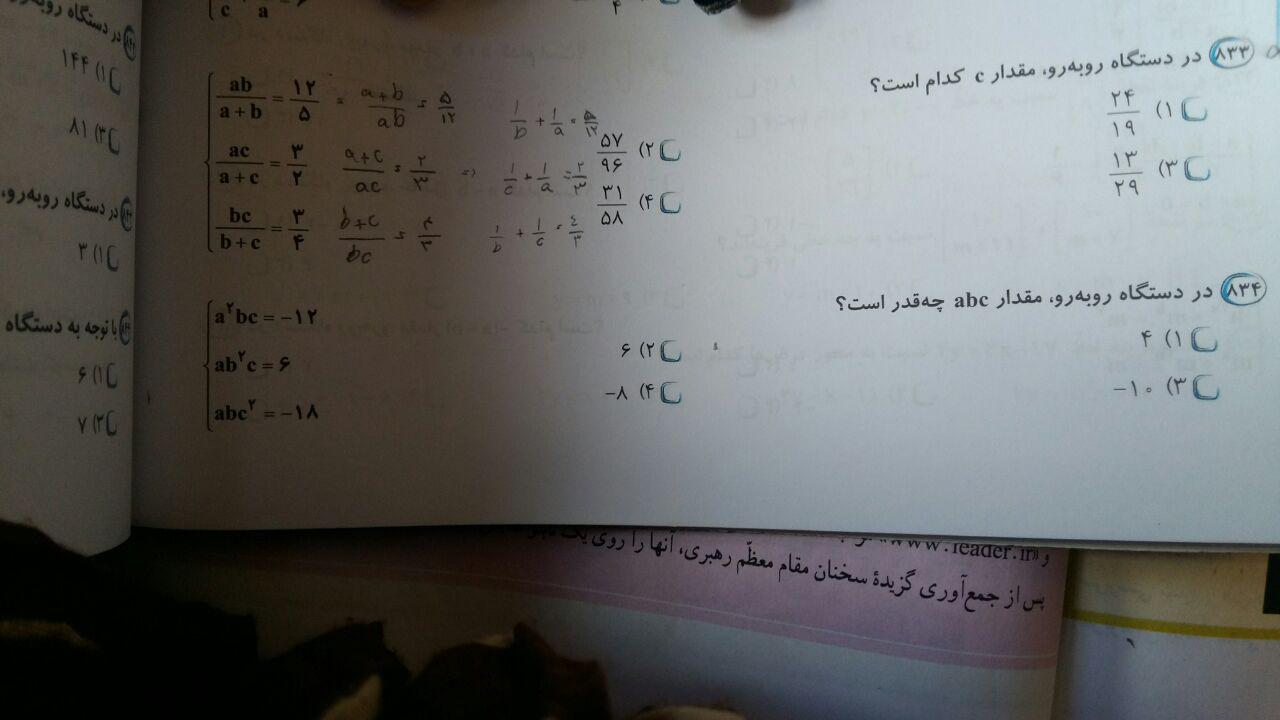 ۸۳۳ در دستگاه روبه‌رو، مقدار c کدام است؟
ab/(a+b) = ۱۲/۵ = (a+b)/ab = ۵/۱۲ 1/b + 1/a = ۵/۱۲
ac/(a+c) = ۳/۲ (a+c)/ac = ۲/۳ => 1/c + 1/a = ۲/۳
bc/(b+c) = ۳/۴ (b+c)/bc = ۴/۳ 1/b + 1/c = ۴/۳
۱) ۲۴/۱۹
۲) ۵۷/۹۶
۳) ۱۳/۲۹
۴) ۳۱/۵۸
۸۳۴ در دستگاه روبه‌رو، مقدار abc چه‌قدر است؟
a²bc = −۱۲
ab²c = ۶
abc² = −۱۸
۱) ۴
۲) ۶
۳) −۱۰
۴) −۸
در دستگاه روبه‌رو
۱) ۱۴۴
۳) ۸۱
در دستگاه روبه‌رو،
۱) ۳
با توجه به دستگاه
۱) ۶
۳) ۷
و «www.leader.ir»
پس از جمع‌آوری گزیدهٔ سخنان مقام معظّم رهبری، آنها را روی یک